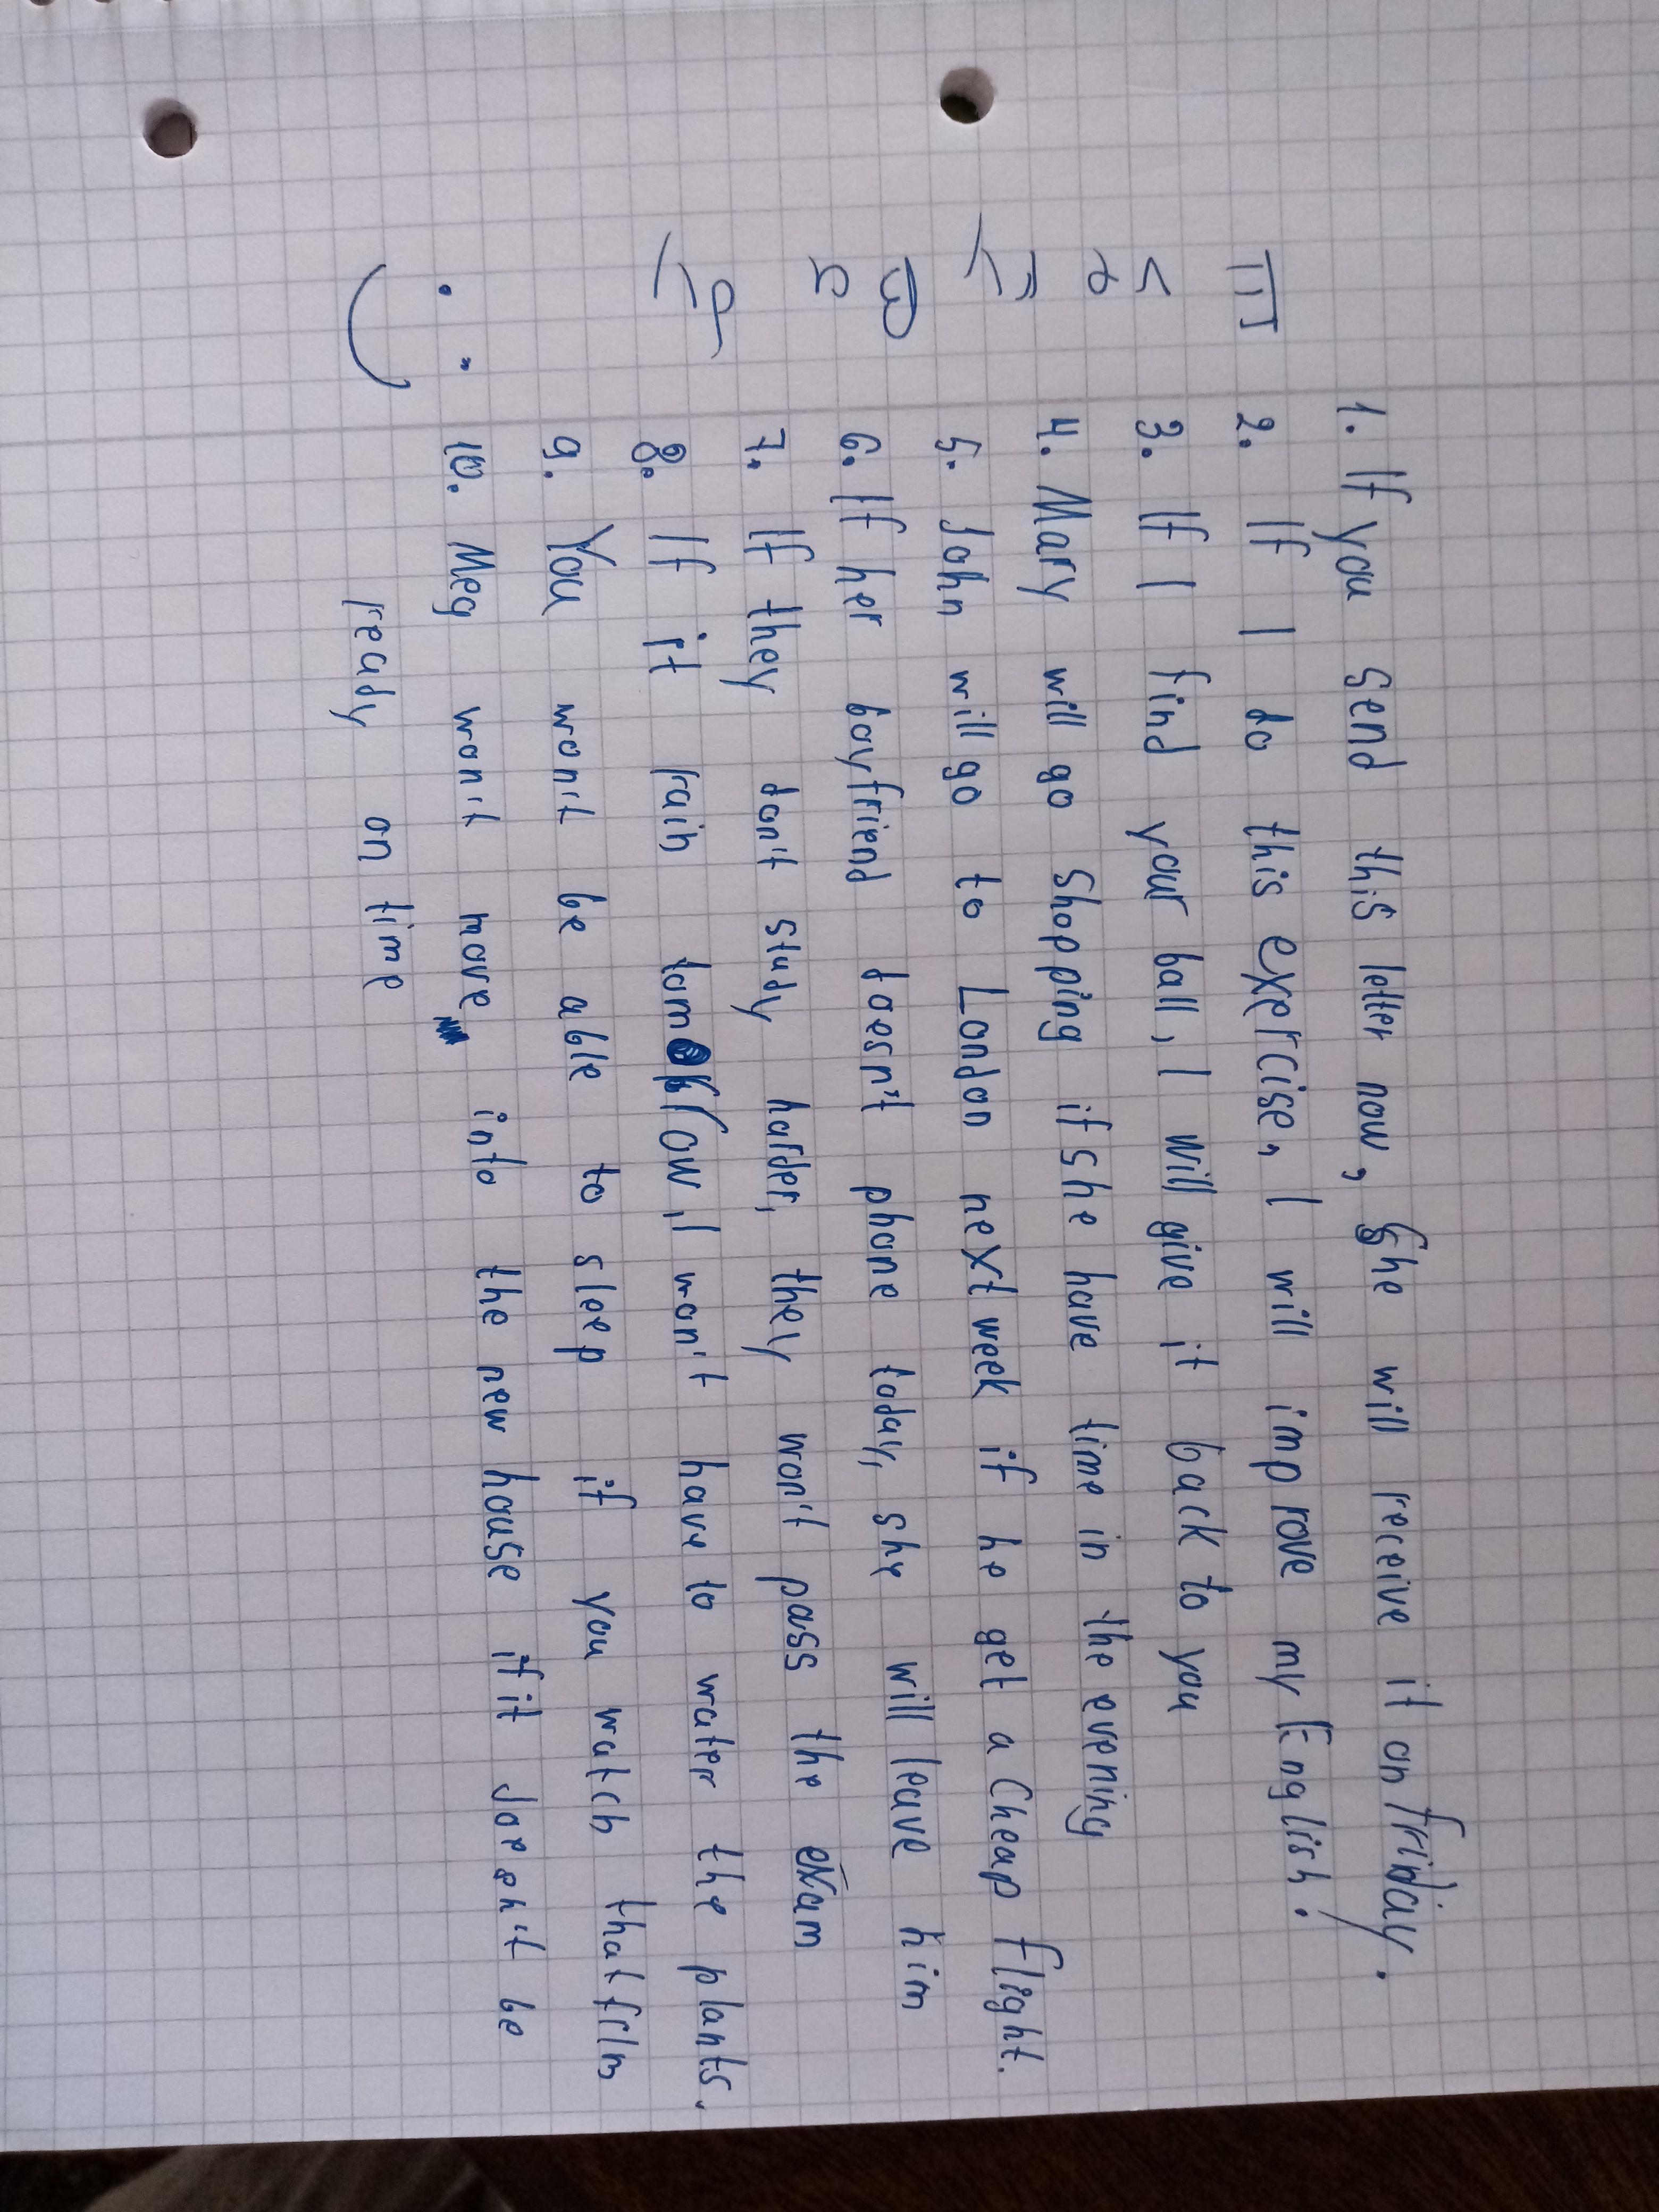 1. If you send this letter now, She will receive it on friday.
2. If I do this exercise, I will improve my English.
3. If I find your ball, I will give it back to you
4. Mary will go shopping if she have time in the evening
5. John will go to London next week if he get a cheap flight.
6. If her boyfriend doesn't phone today, she will leave him
7. If they don't study harder, they won't pass the exam
8. If it rain tomorrow, I won't have to water the plants.
9. You won't be able to sleep if you watch that film
10. Meg won't move into the new house if it doesn't be
ready on time